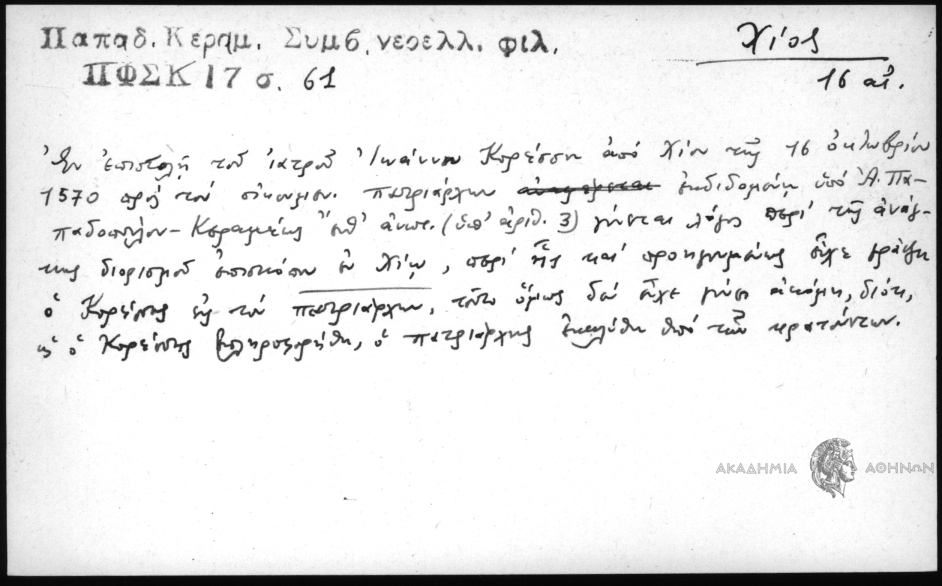 Παπαδ. Κεραμ. Συμβ. νεοελλ. φιλ.
ΠΦΣΚ 17 σ. 61
Χίος
16 αἰ.
Ἐν ἐπιστολῇ τοῦ ἰατροῦ Ἰωάννου Κορέσση ἀπό Χίου τῆς 16 ὀκτωβρίου
1570 πρός τόν οἰκουμεν. πατριάρχην ἐκδιδομένῃ ὑπό Ἀ. Πα-
παδοπούλου - Κεραμέως ἔνθ' ἀνωτ. (ὑπ' ἀριθ. 3) γίνεται λόγος περί τῆς ἀνάγ-
κης διορισμοῦ ἐπισκόπου ἐν Χίῳ, περί ἧς καί προηγουμένως εἶχε γράψει
ὁ Κορέσσης εἰς τόν πατριάρχην, τοῦτο ὅμως δέν εἶχε γίνει ἀκόμη, διότι,
ὡς ὁ Κορέσσης ἐπληροφορήθη, ὁ πατριάρχης ὑπό τῶν κρατούντων.
ΑΚΑΔΗΜΙΑ ΑΘΗΝΩΝ